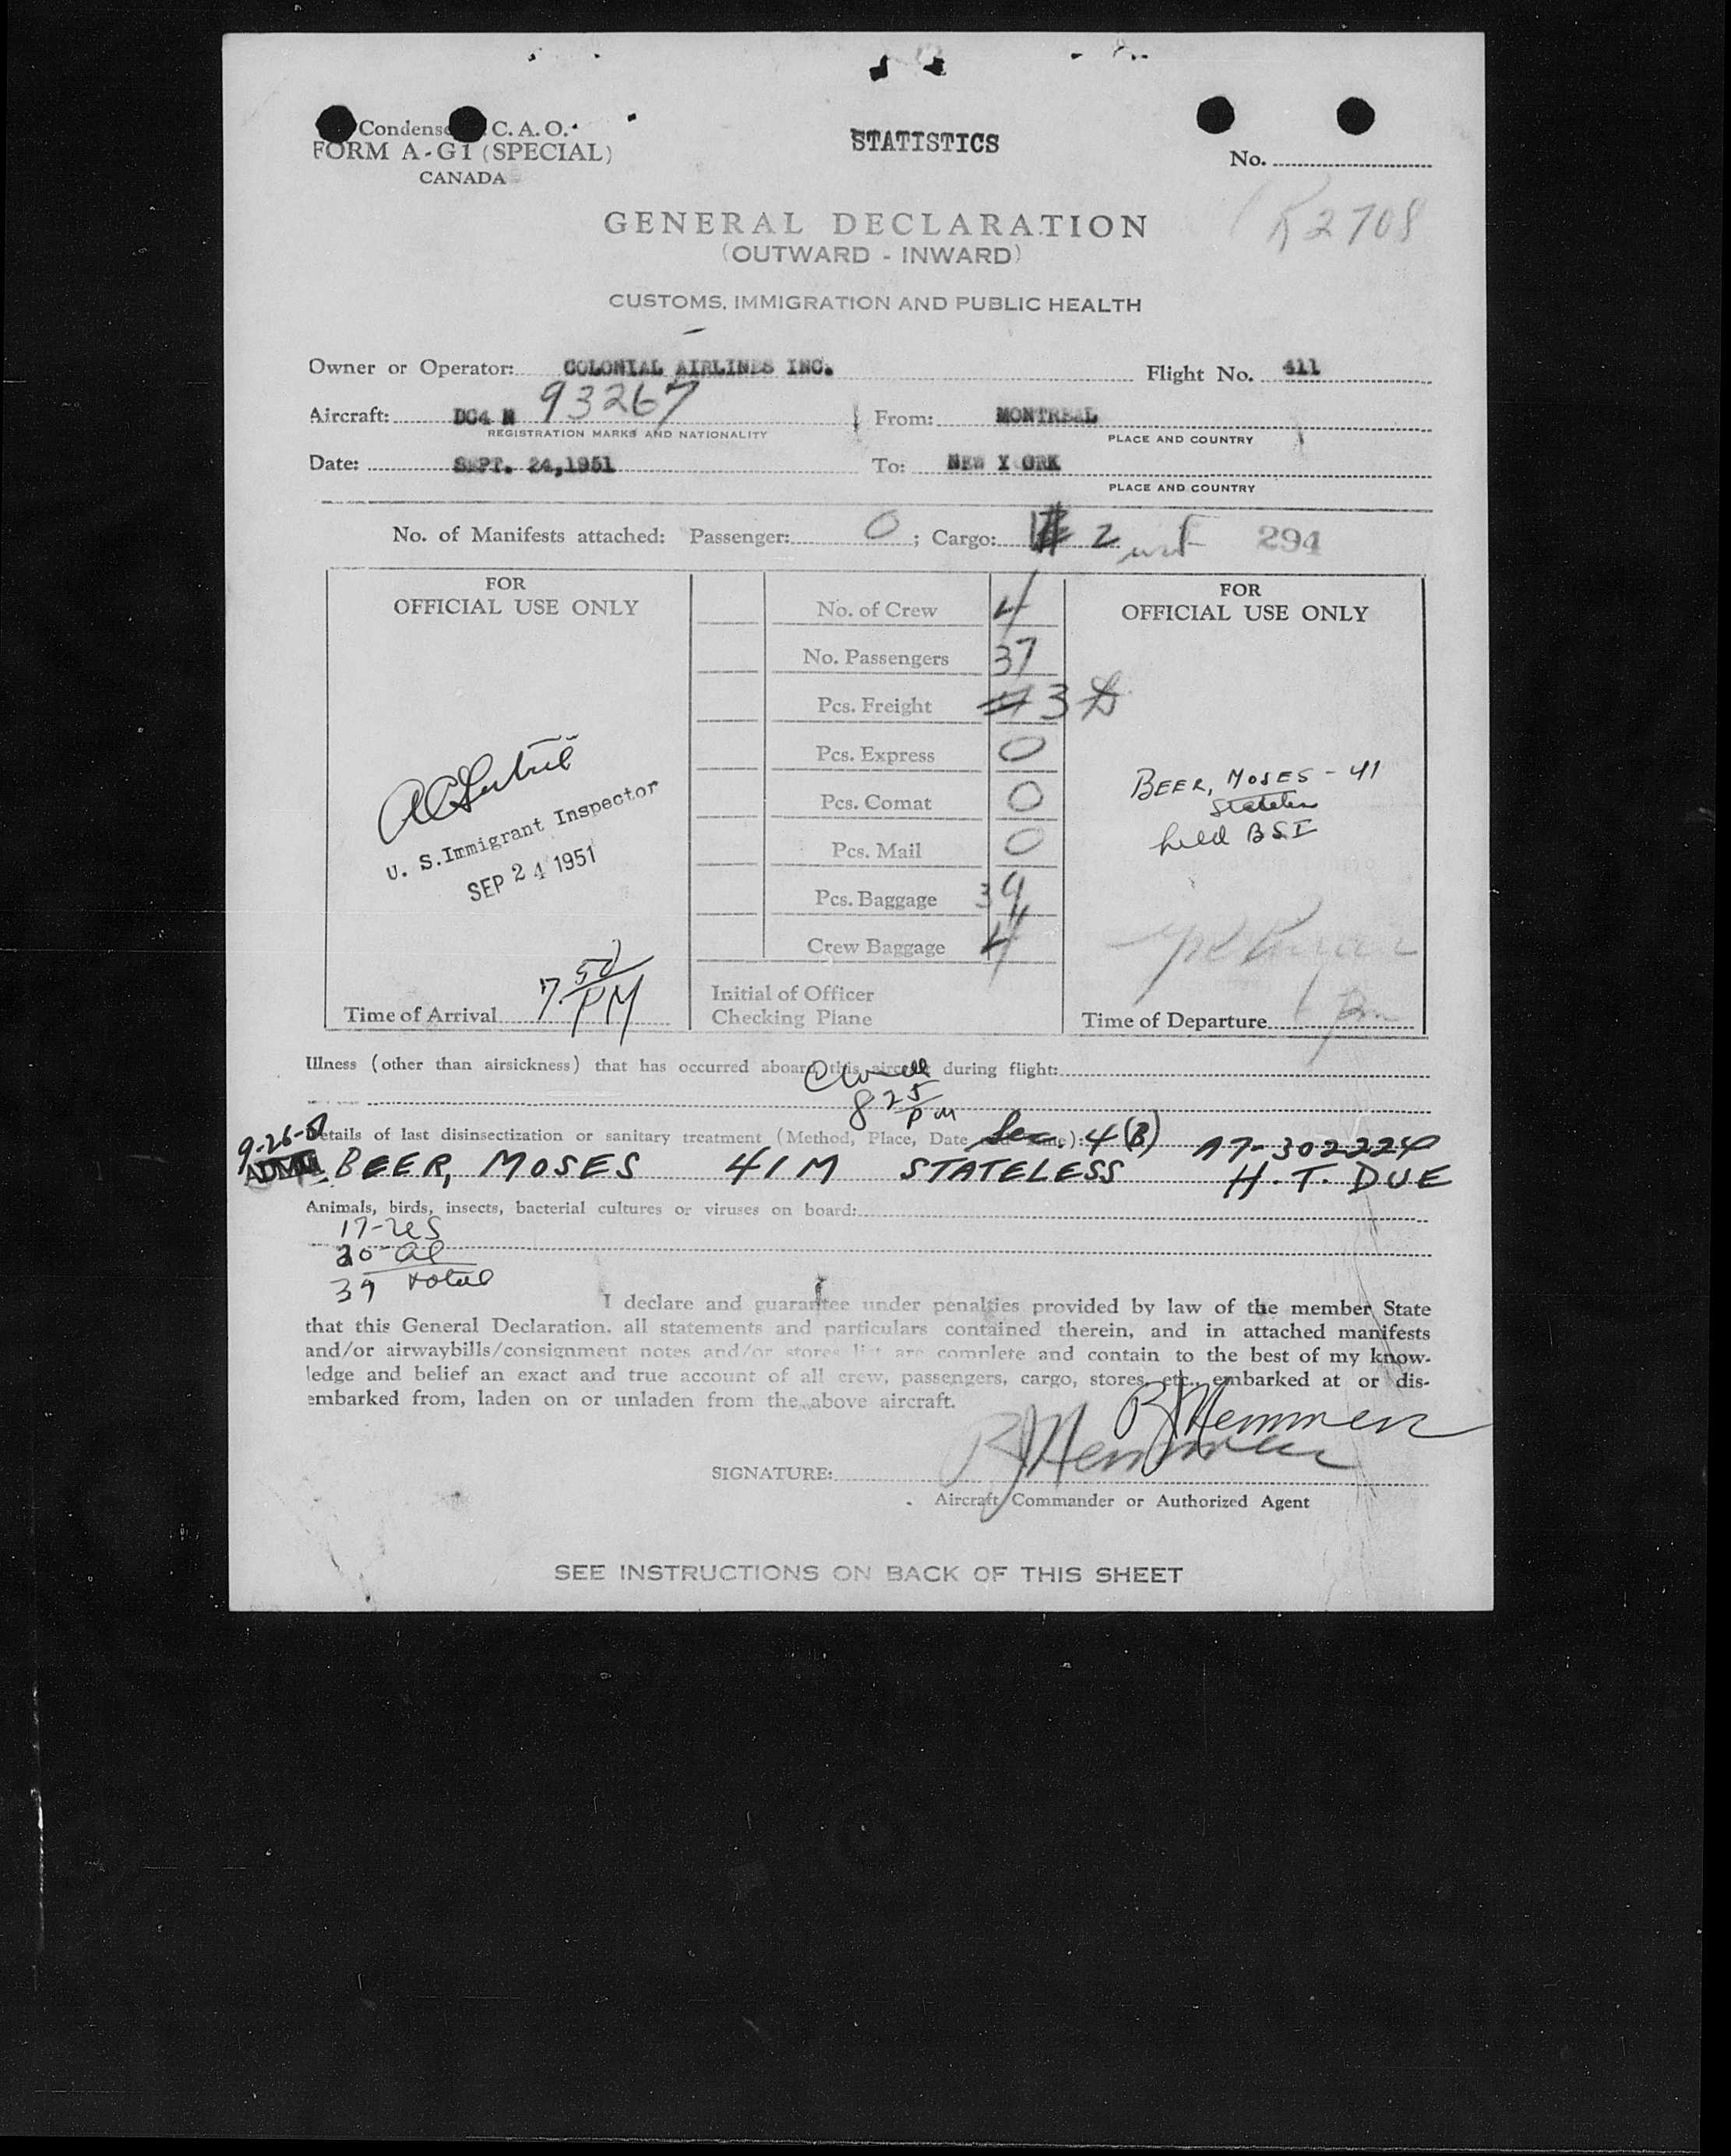 STATISTICS
Condens C. A. O.
FORM A-G1 (SPECIAL)
CANADA
No.
R2708
GENERAL DECLARATION
(OUTWARD - INWARD)
CUSTOMS, IMMIGRATION AND PUBLIC HEALTH
Owner or Operator: COLONIAL AIRLINES INC. Flight No. 411
Aircraft: DC4 N 93267 From: MONTREAL
REGISTRATION MARKS AND NATIONALITY PLACE AND COUNTRY
Date: SEPT. 24,1951 To: NEW YORK
PLACE AND COUNTRY
No. of Manifests attached: Passenger: 0 ; Cargo: 2 294
FOR
OFFICIAL USE ONLY
U. S. Immigrant Inspector
SEP 24 1951
Time of Arrival 7 50 PM
No. of Crew 4
No. Passengers 37
Pcs. Freight 3
Pcs. Express 0
Pcs. Comat 0
Pcs. Mail 0
Pcs. Baggage 39
Crew Baggage 4
Initial of Officer
Checking Plane
FOR
OFFICIAL USE ONLY
BEER, MOSES - 41
Stateless
held BSI
Time of Departure
Illness (other than airsickness) that has occurred aboard this aircraft during flight:
8 25 PM
9-26-51 Details of last disinsectization or sanitary treatment (Method, Place, Date Sec. 4(B) A7-3022224
BEER, MOSES 41 M STATELESS H. T. DUE
Animals, birds, insects, bacterial cultures or viruses on board:
17-US
20-al
37 total
I declare and guarantee under penalties provided by law of the member State
that this General Declaration, all statements and particulars contained therein, and in attached manifests
and/or airwaybills/consignment notes and/or stores list are complete and contain to the best of my know-
ledge and belief an exact and true account of all crew, passengers, cargo, stores, etc., embarked at or dis-
embarked from, laden on or unladen from the above aircraft.
RJ Hemmen
SIGNATURE: RJ Hemmen
Aircraft Commander or Authorized Agent
SEE INSTRUCTIONS ON BACK OF THIS SHEET